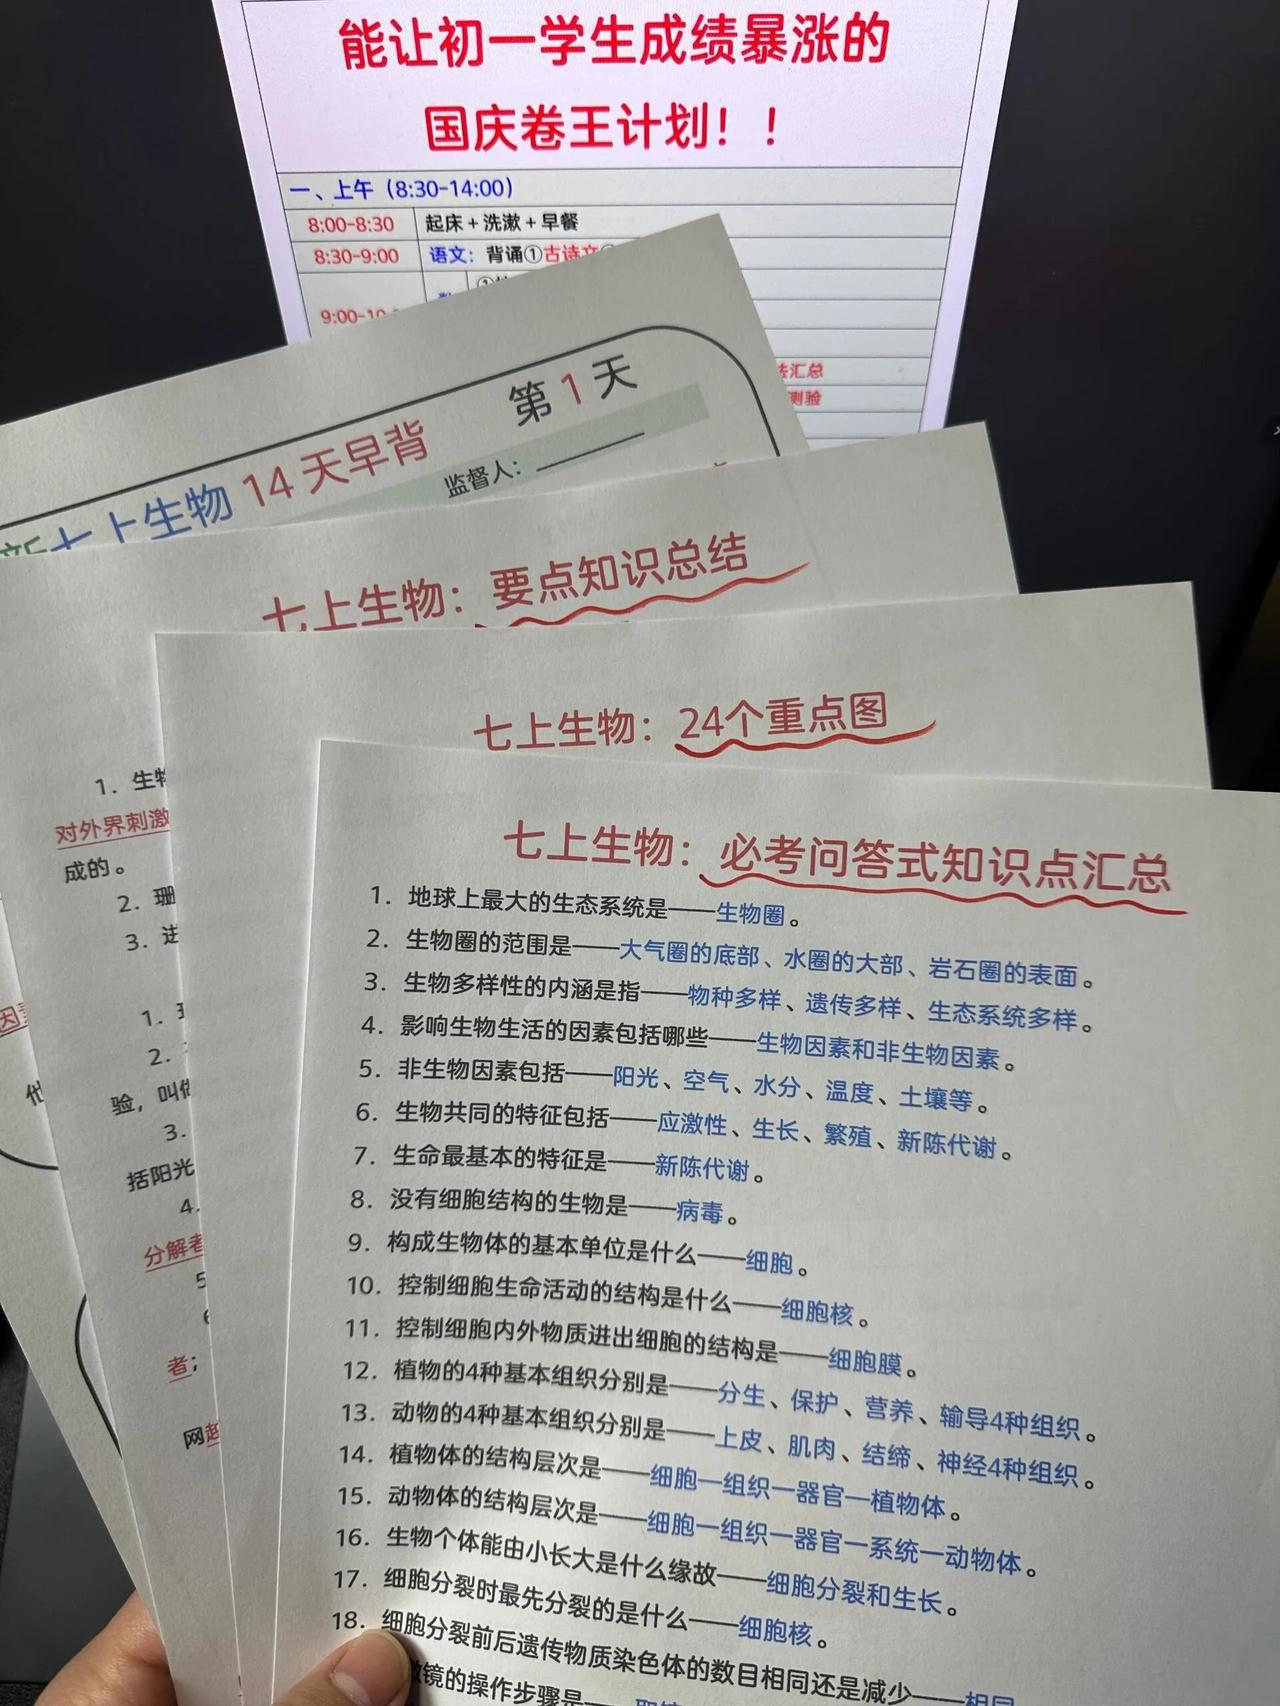 能让初一学生成绩暴涨的
国庆卷王计划！！
一、上午（8:30-14:00）
8:00-8:30 起床+洗漱+早餐
8:30-9:00 语文：背诵①古诗文
9:00-10
法汇总
测验
第1天
新七上生物14天早背
监督人：
七上生物：要点知识总结
1. 生物
对外界刺激
成的。
2. 珊
3. 进
1.
2.
验，叫做
3.
括阳光
4.
分解者
5
6
者；
网
因素
他
七上生物：24个重点图
七上生物：必考问答式知识点汇总
1. 地球上最大的生态系统是——生物圈。
2. 生物圈的范围是——大气圈的底部、水圈的大部、岩石圈的表面。
3. 生物多样性的内涵是指——物种多样、遗传多样、生态系统多样。
4. 影响生物生活的因素包括哪些——生物因素和非生物因素。
5. 非生物因素包括——阳光、空气、水分、温度、土壤等。
6. 生物共同的特征包括——应激性、生长、繁殖、新陈代谢。
7. 生命最基本的特征是——新陈代谢。
8. 没有细胞结构的生物是——病毒。
9. 构成生物体的基本单位是什么——细胞。
10. 控制细胞生命活动的结构是什么——细胞核。
11. 控制细胞内外物质进出细胞的结构是——细胞膜。
12. 植物的4种基本组织分别是——分生、保护、营养、输导4种组织。
13. 动物的4种基本组织分别是——上皮、肌肉、结缔、神经4种组织。
14. 植物体的结构层次是——细胞—组织—器官—植物体。
15. 动物体的结构层次是——细胞—组织—器官—系统—动物体。
16. 生物个体能由小长大是什么缘故——细胞分裂和生长。
17. 细胞分裂时最先分裂的是什么——细胞核。
18. 细胞分裂前后遗传物质染色体的数目相同还是减少——相同
微镜的操作步骤是——取镜